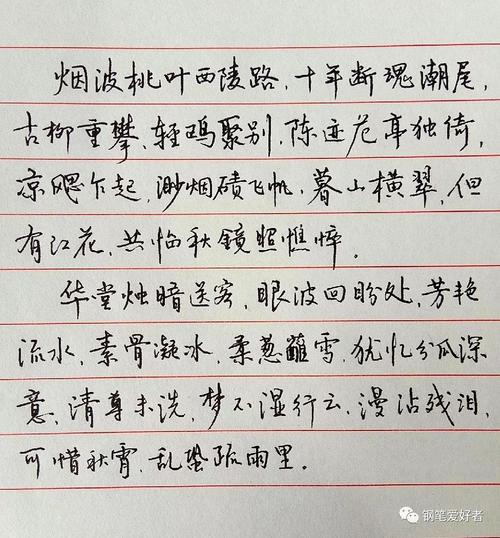 烟波桃叶西陵路,十年断魂潮尾,
古柳重攀,轻鸥聚别,陈迹危亭独倚,
凉飔乍起,渺烟碛飞帆,暮山横翠,但
有江花,共临秋镜照憔悴。
华堂烛暗送客,眼波回盼处,芳艳
流水,素骨凝冰,柔葱蘸雪,犹忆分瓜深
意,清尊未洗,梦不湿行云,漫沾残泪,
可惜秋宵,乱蛩疏雨里。
钢笔爱好者